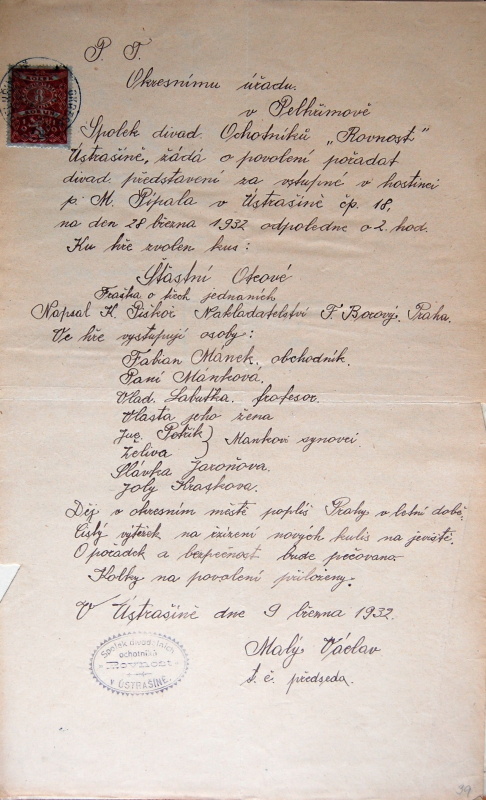 P. T.
Okresnímu úřadu.
v Pelhřimově
Spolek divad. Ochotníků „Rovnost"
Ústrašíně, žádá o povolení pořádat
divad. představení za vstupné v hostinci
p. M. Pípala v Ústrašíně čp. 18,
na den 28 března 1932 odpoledne o 2. hod.
Ku hře zvolen kus:
Šťastní Otcové
Fraška o třech jednáních
Napsal K. Piskoř Nakladatelství F Bocový. Praha.
Ve hře vystupují osoby:
Fabian Mánek, obchodník.
Paní Mánková.
Vlad. Labuťka. profesor.
Vlasta jeho žena
Juc. Petřík
Želiva } Mankovi synovci
Slávka Jaroňova.
Joly Kraskova.
Děj v okresním městě poplíš Prahy v letní době.
Čistý výtěžek na zřízení nových kulis na jeviště.
O pořádek a bezpečnost bude pečováno.
Kolky na povolení přiloženy.
V Ústrašíně dne 9 března 1932.
Malý Václav
t. č. předseda.
Spolek divadelních
ochotníků
Rovnost
v ÚSTRAŠÍNĚ.
39